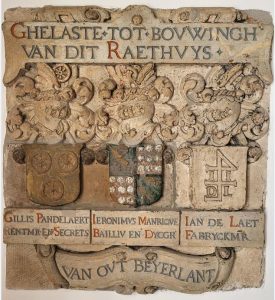 GHELASTE·TOT·BOVWINGH
VAN DIT RAETHVYS·
GILLIS PANDELAERT
RENTMR· EN SECRETS
IERONIMVS MANRICVE
BAILLIV EN DYCGR
IAN DE LAET
FABRYCKMR
VAN OVT BEYERLANT